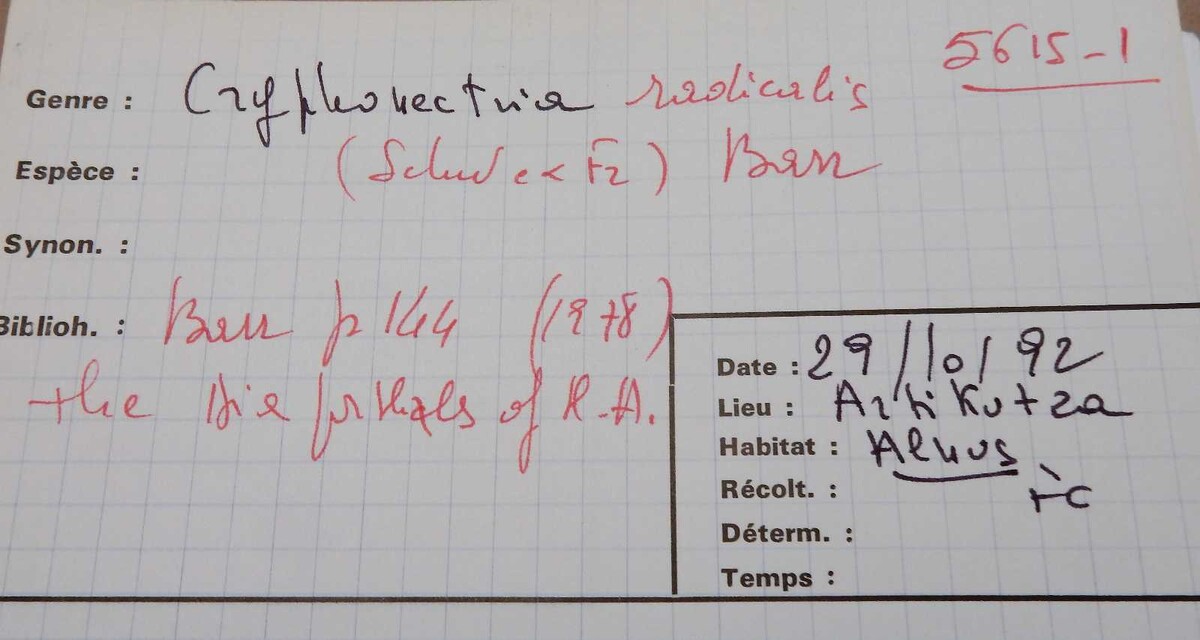 5615-1
Genre : Cryphonectria radicalis
Espèce : (Schw ex Fr) Barr
Synon. :
Biblioh. : Barr p 144 (1978)
the Diaporthales of N.A.
Date : 29/10/92
Lieu : Artikutza
Habitat : Alnus
Récolt. : FC
Déterm. :
Temps :